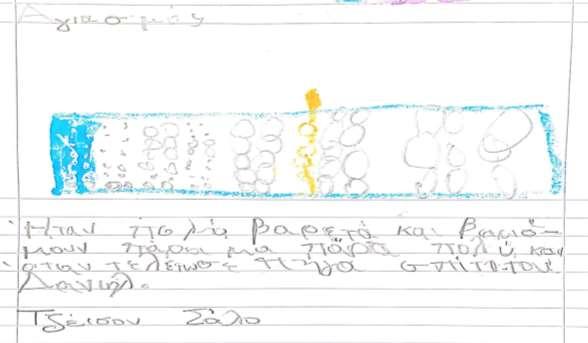 Αγιασμός
Ήταν πολύ βαρετά και βαριό-
μουν πάρα μα πάρα πολύ, και
όταν τέλειωσε πήγα σπίτι του
Δανιήλ.
Τζέισον Σάλο